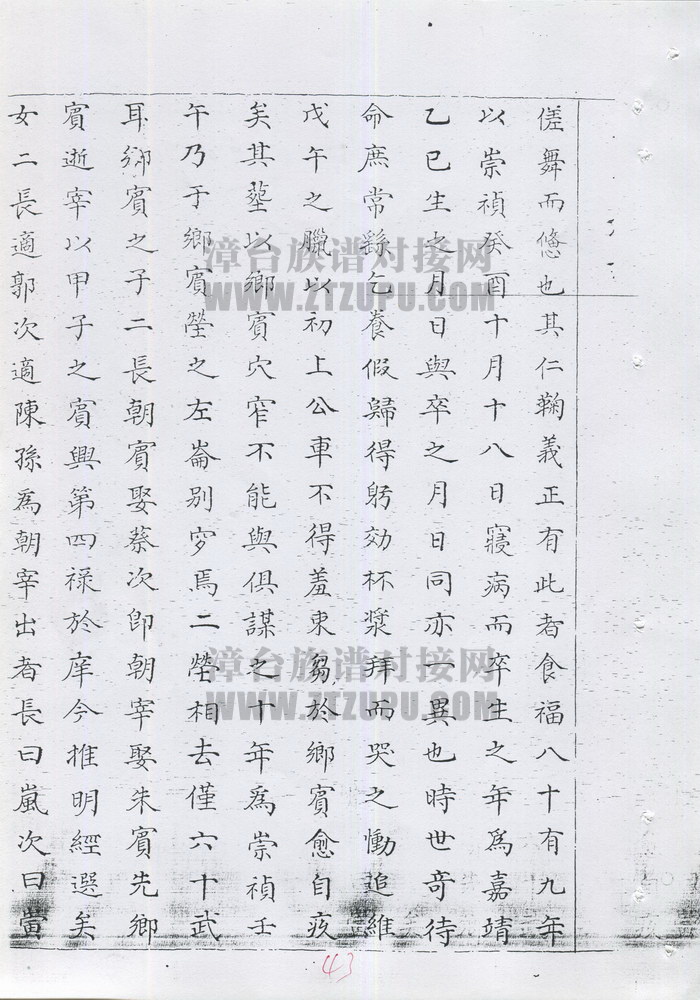 傞舞而慫也其仁鞠義正有此者食福八十有九年
以崇禎癸酉十月十八日寢病而卒生之年爲嘉靖
乙巳生之月日與卒之月日同亦一異也時世竒待
命庶常繇乞養假歸得躬効杯漿拜而哭之慟追維
戊午之臘以初上公車不得羞束芻於鄉賓愈自疚
矣其塟以鄉賓穴窄不能與俱謀之十年爲崇禎壬
午乃于鄉賓塋之左崙別穸焉二塋相去僅六十武
耳鄉賓之子二長朝賓娶蔡次卽朝宰娶朱賓先鄉
賓逝宰以甲子之賓興第四祿於庠今推明經選矣
女二長適郭次適陳孫爲朝宰出者長曰嵐次曰
漳台族谱对接网
WWW.ZTZUPU.COM
漳台族谱对接网
WWW.ZTZUPU.COM
43